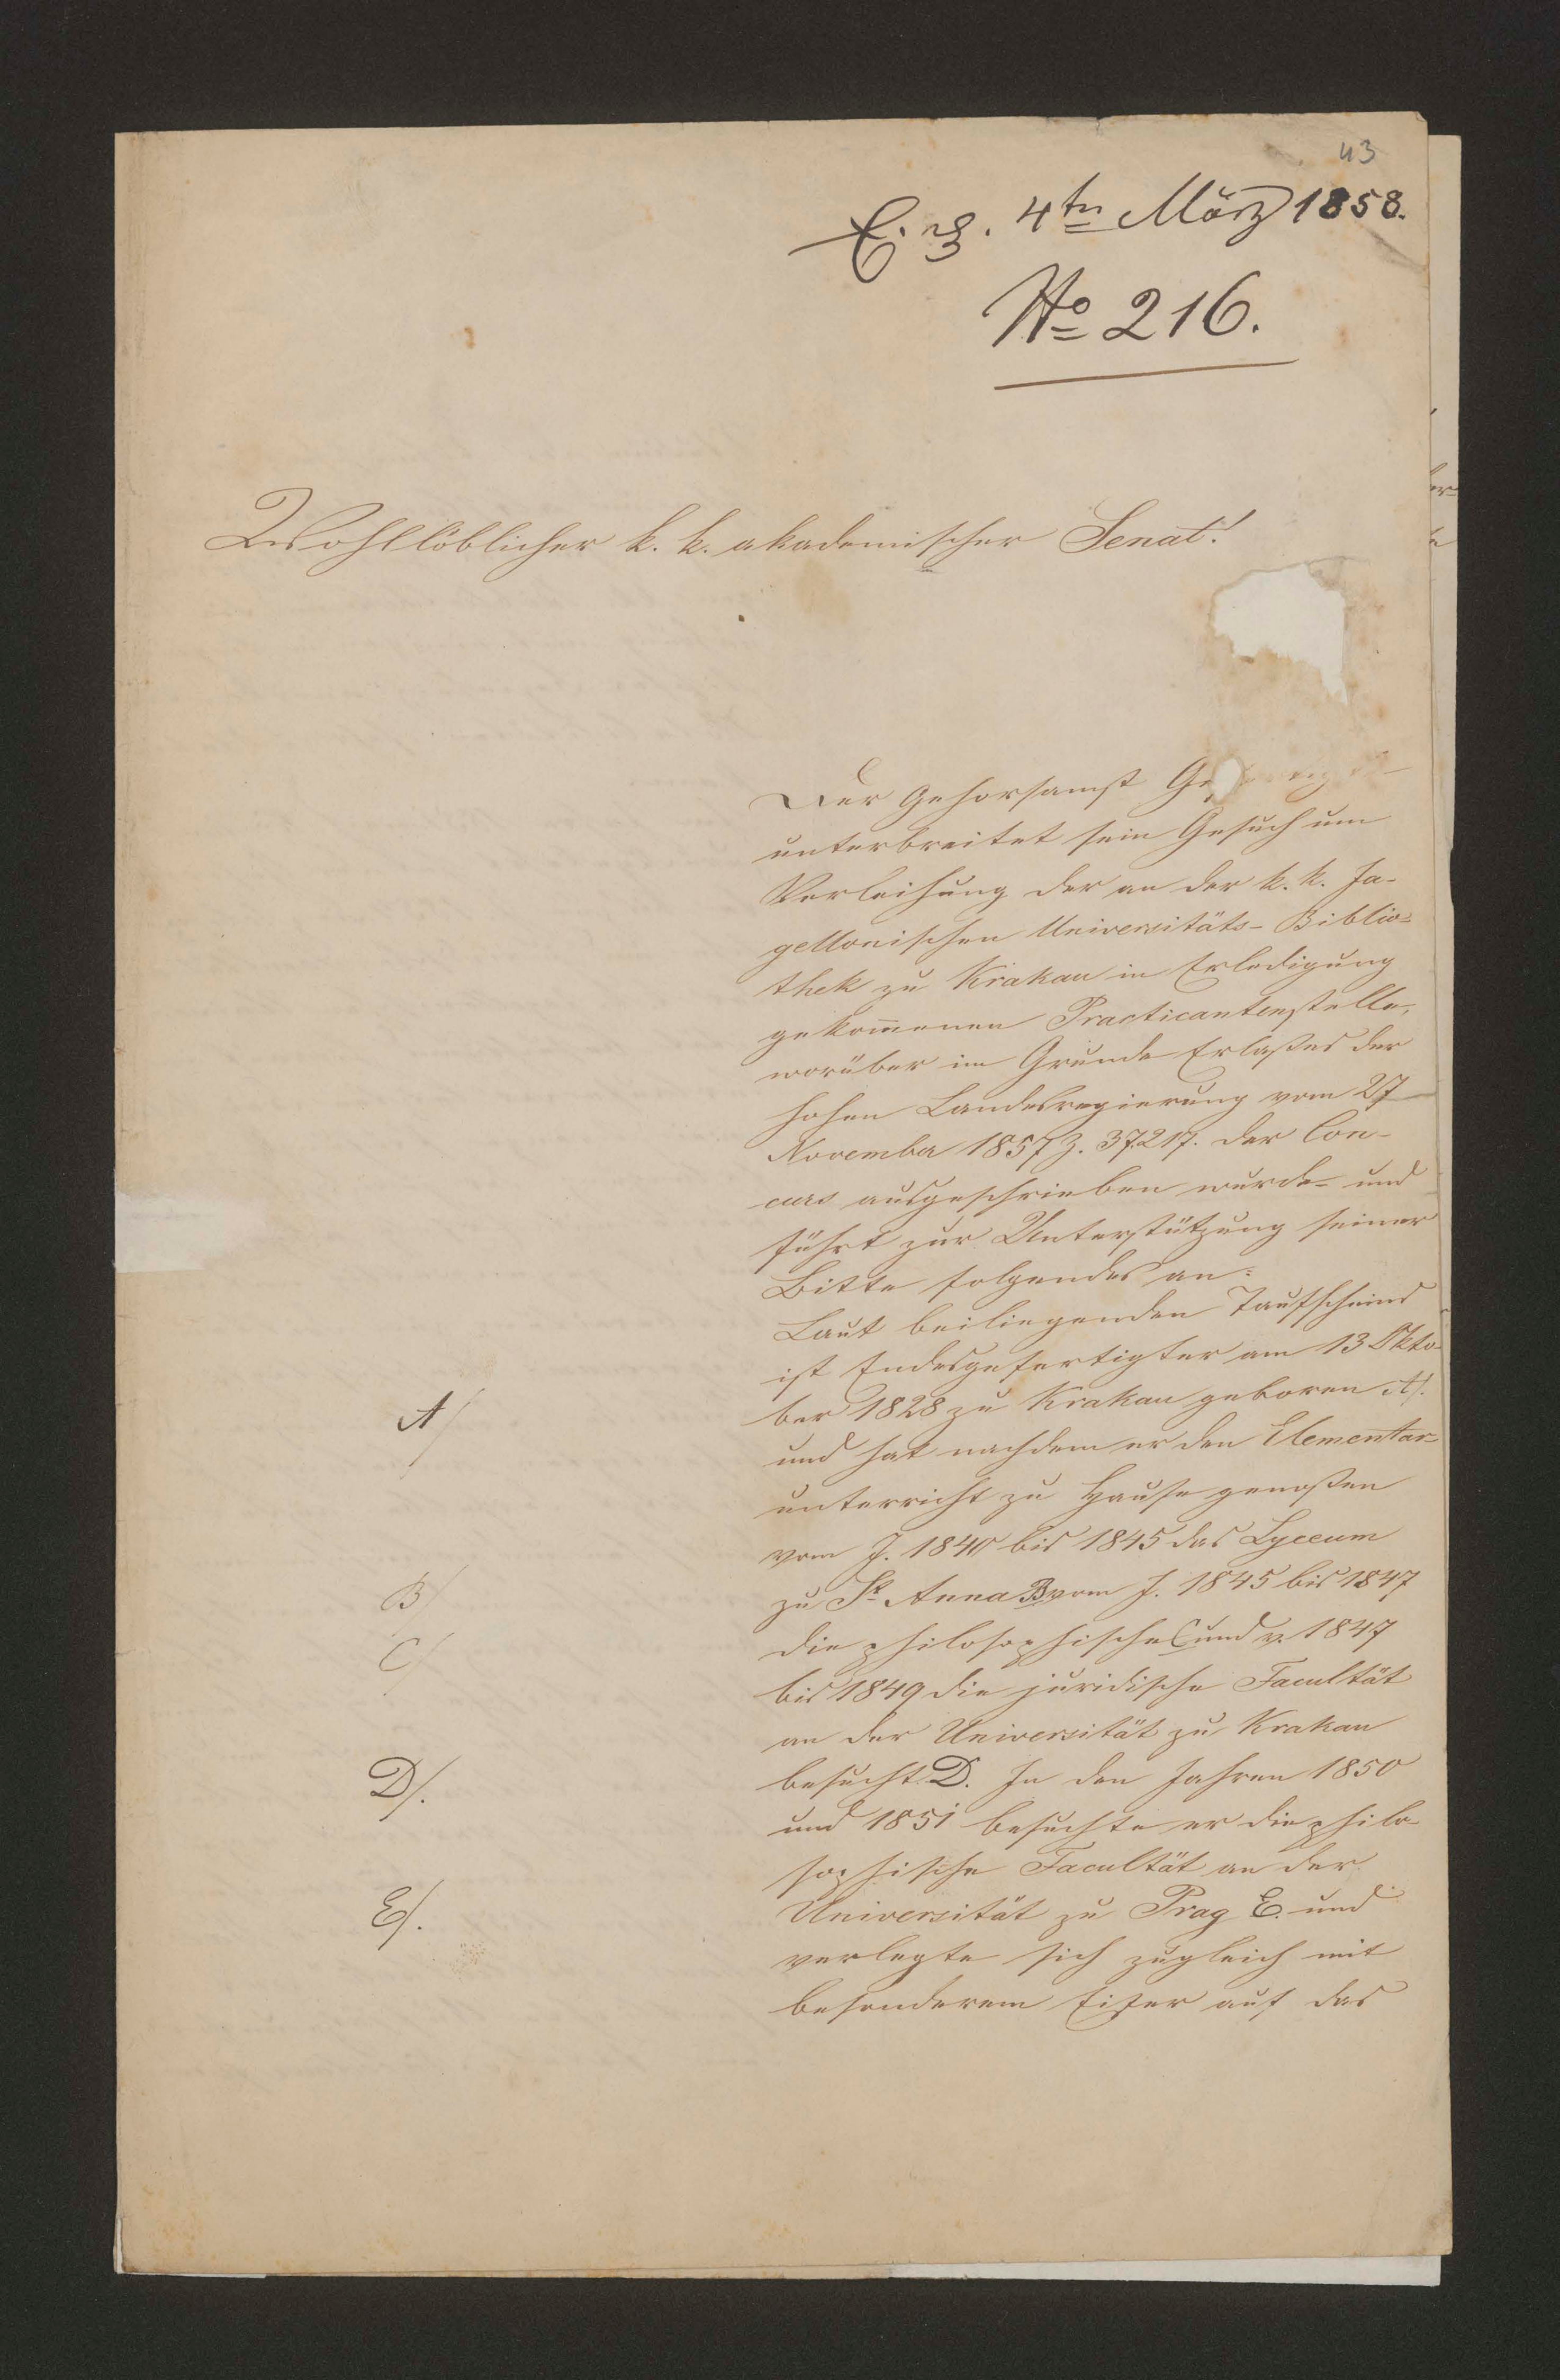 43
E. z. 4ten März 1858.
No 216.
Wohllöblicher k. k. akademischer Senat!
Der gehorsamst
unterbreitet sein Gesuch um
Verleihung der an der k. k. Ja-
gellonischen Universitäts-Biblio=
thek zu Krakau in Erledigung
gekom̄enen Practicantenstelle,
worüber im Grunde Erlaßes der
hohen Landesregierung vom 27
November 1857 Z. 37217. der Con-
curs ausgeschrieben wurde – und
führt zur Unterstützung seiner
Bitte folgendes an:
Laut beiliegenden Taufscheins
ist Endesgefertigter am 13 Okto-
A/
ber 1828 zu Krakau geboren A/.
und hat nachdem er den Elementar-
unterricht zu Hause genoßen
vom J. 1840 bis 1845 das Lyceum
B/
zu St Anna B vom J. 1845 bis 1847
C/
die philosophische C und v. 1847
bis 1849 die juridische Facultät
an der Universität zu Krakau
D/.
besucht D. In den Jahren 1850
und 1851 besuchte er die philo-
sophische Facultät an der
E/.
Universität zu Prag E. und
verlegte sich zugleich mit
besonderem Eifer auf das